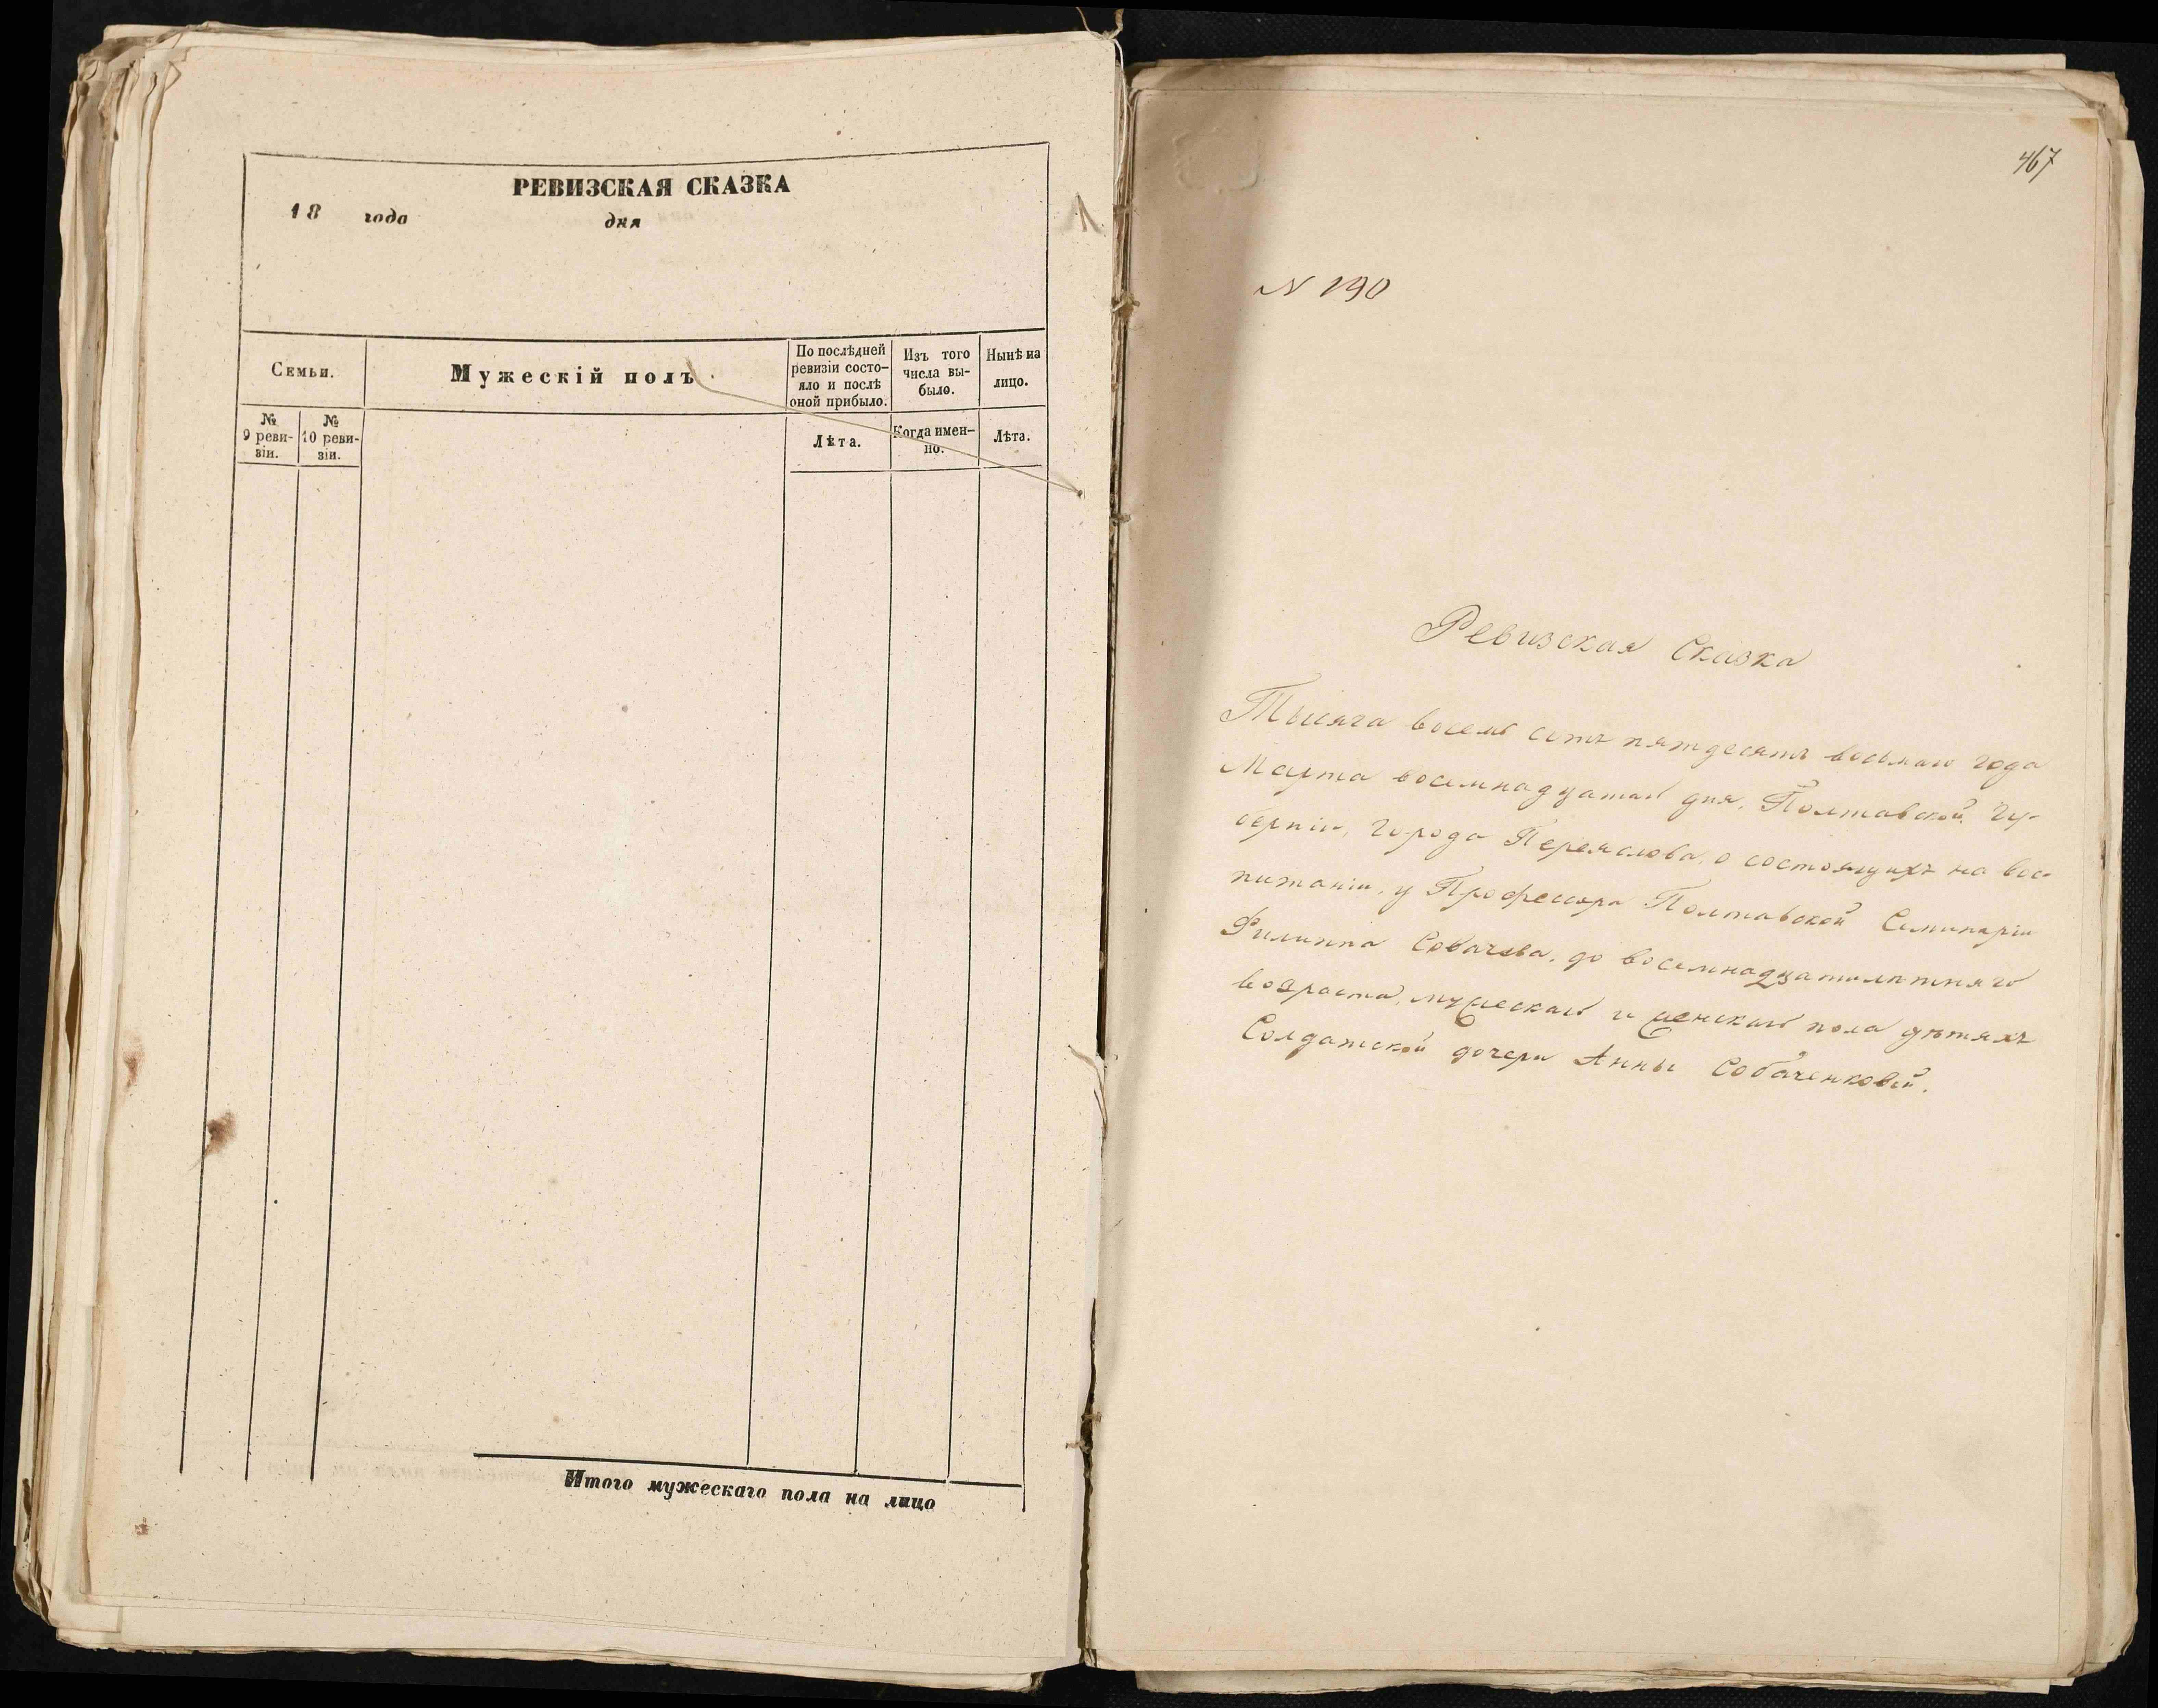 РЕВИЗСКАЯ СКАЗКА
18 года дня
Семьи.
Мужескій полъ.
По послѣдней
ревизіи состо-
яло и послѣ
оной прибыло.
Изъ того
числа вы-
было.
Нынѣ на
лицо.
№
9 реви-
зіи.
№
10 реви-
зіи.
Лѣта.
Когда имен-
но.
Лѣта.
Итого мужескаго пола на лицо
467
N 190
Ревизская Сказка
Тысяча восемь сотъ пятдесятъ восьмаго года
Марта восемнадцатаго дня, Полтавской Гу-
берніи, города Переяслова, о состоящихъ на вос-
питаніи, у Профессора Полтавской Семинаріи
Филиппа до восемнадцатилѣтняго
возраста, мужескаго и женскаго пола дѣтяхъ
Солдатской дочери Анны Собаченковой.